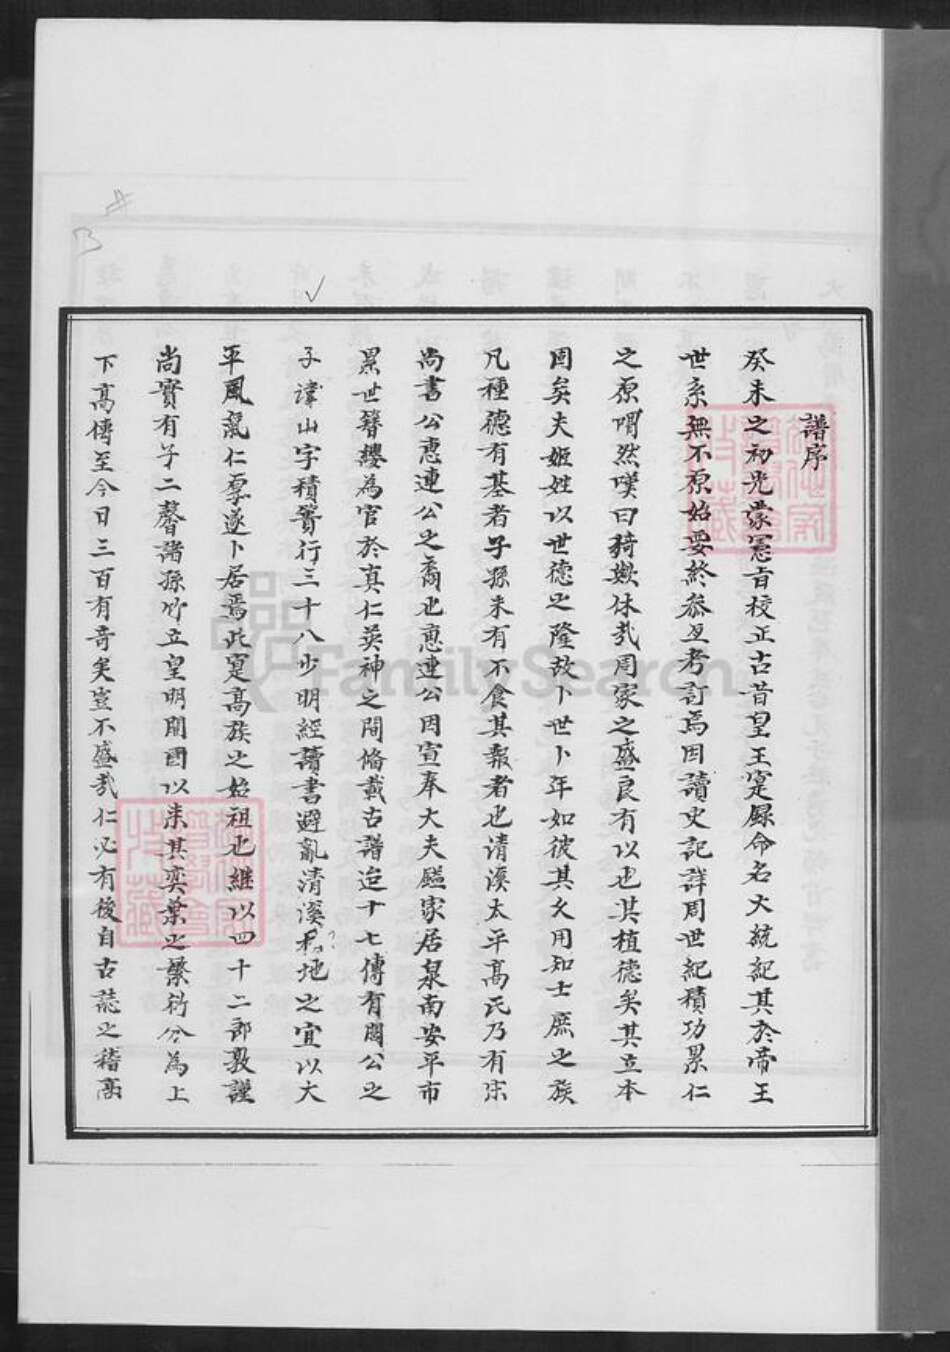 譜序
癸未之初光蒙憲旨校正古昔皇王寔錄命名大統紀其於帝王
世系無不原始要終參互考訂焉因讀史記詳周世紀積功累仁
之原喟然嘆曰猗歟休哉周家之盛良有以也其植德矣其立本
固矣夫姬姓以世德之隆故卜世卜年如彼其久用知士庶之族
凡種德有基者子孫未有不食其報者也清溪太平高氏乃有宋
尚書公惠連公之裔也惠連公因宣奉大夫鎰家居泉南安平市
累世簪纓為官於真仁英神之間備載古譜迨十七傳有閣公之
子諱山字積賓行三十八少明經讀書避亂清溪地之宜以大
平風氣仁厚遂卜居焉此寔高族之始祖也繼以四十二郎敦謹
尚實有子二馨諸孫竹立皇明開國以來其奕葉之繁衍分為上
下高傳至今日三百有奇矣豈不盛哉仁必有後自古誌之稽高
FamilySearch